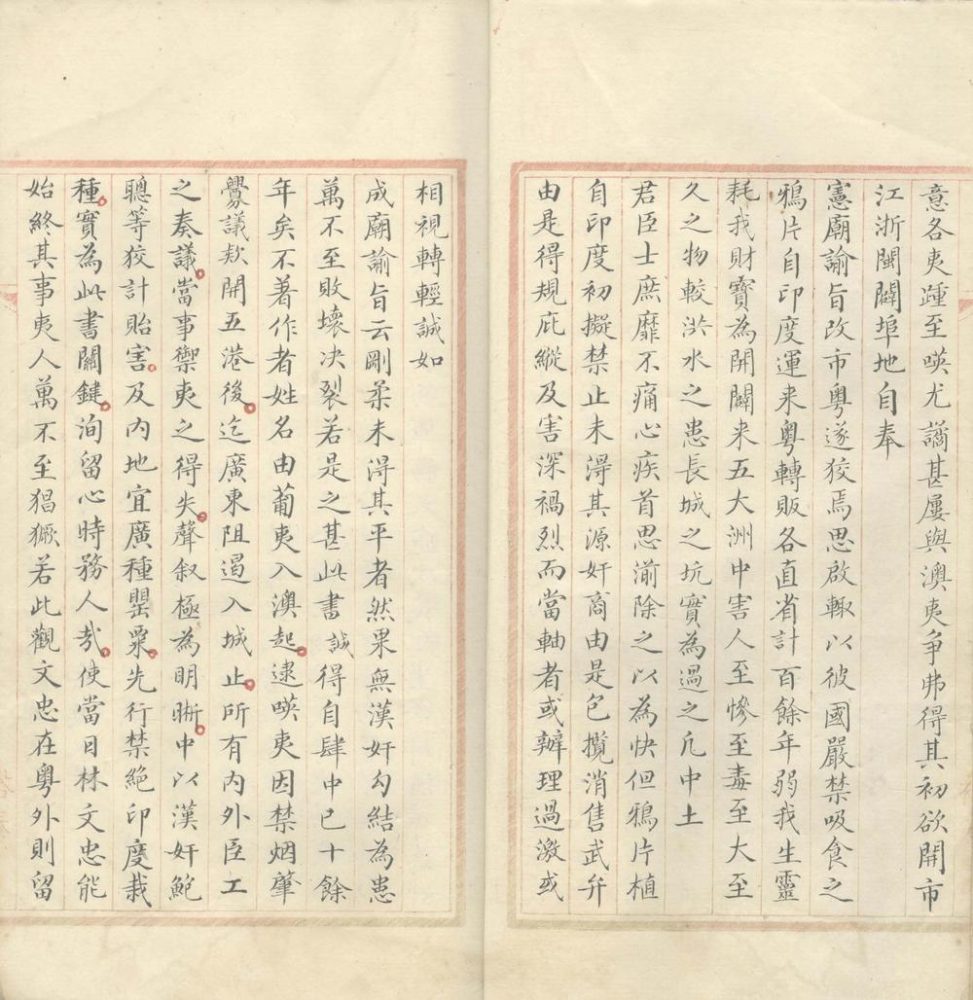 意各夷踵至㗆尤譎甚屢與澳夷爭弗得其初欲開市
江浙閩闢埠地自奉
憲廟諭旨改市粵遂狡焉思啟輙以彼國嚴禁吸食之
鴉片自印度運来粵轉販各直省計百餘年弱我生靈
耗我財寶為開闢来五大洲中害人至慘至毒至大至
久之物較洪水之患長城之坑實為過之凢中土
君臣士庶靡不痛心疾首思湔除之以為快但鴉片植
自印度初擬禁止未得其源奸商由是包攬消售武弁
由是得規庇縱及害深禍烈而當軸者或辦理過激或
相視轉輕誠如
成廟諭旨云剛柔未得其平者然果無漢奸勾結為患
萬不至敗壞决裂若是之甚此書誠得自肆中已十餘
年矣不著作者姓名由葡夷入澳起逮㗆夷因禁烟肇
釁議欵開五港後迄廣東阻遏入城止所有内外臣工
之奏議當事禦夷之得失聲叙極為明晰中以漢奸鮑
聰等狡計貽害及内地宜廣種罌粟先行禁絶印度栽
種實為此書關鍵洵留心時務人㢤使當日林文忠能
始終其事夷人萬不至猖獗若此觀文忠在粵外則留